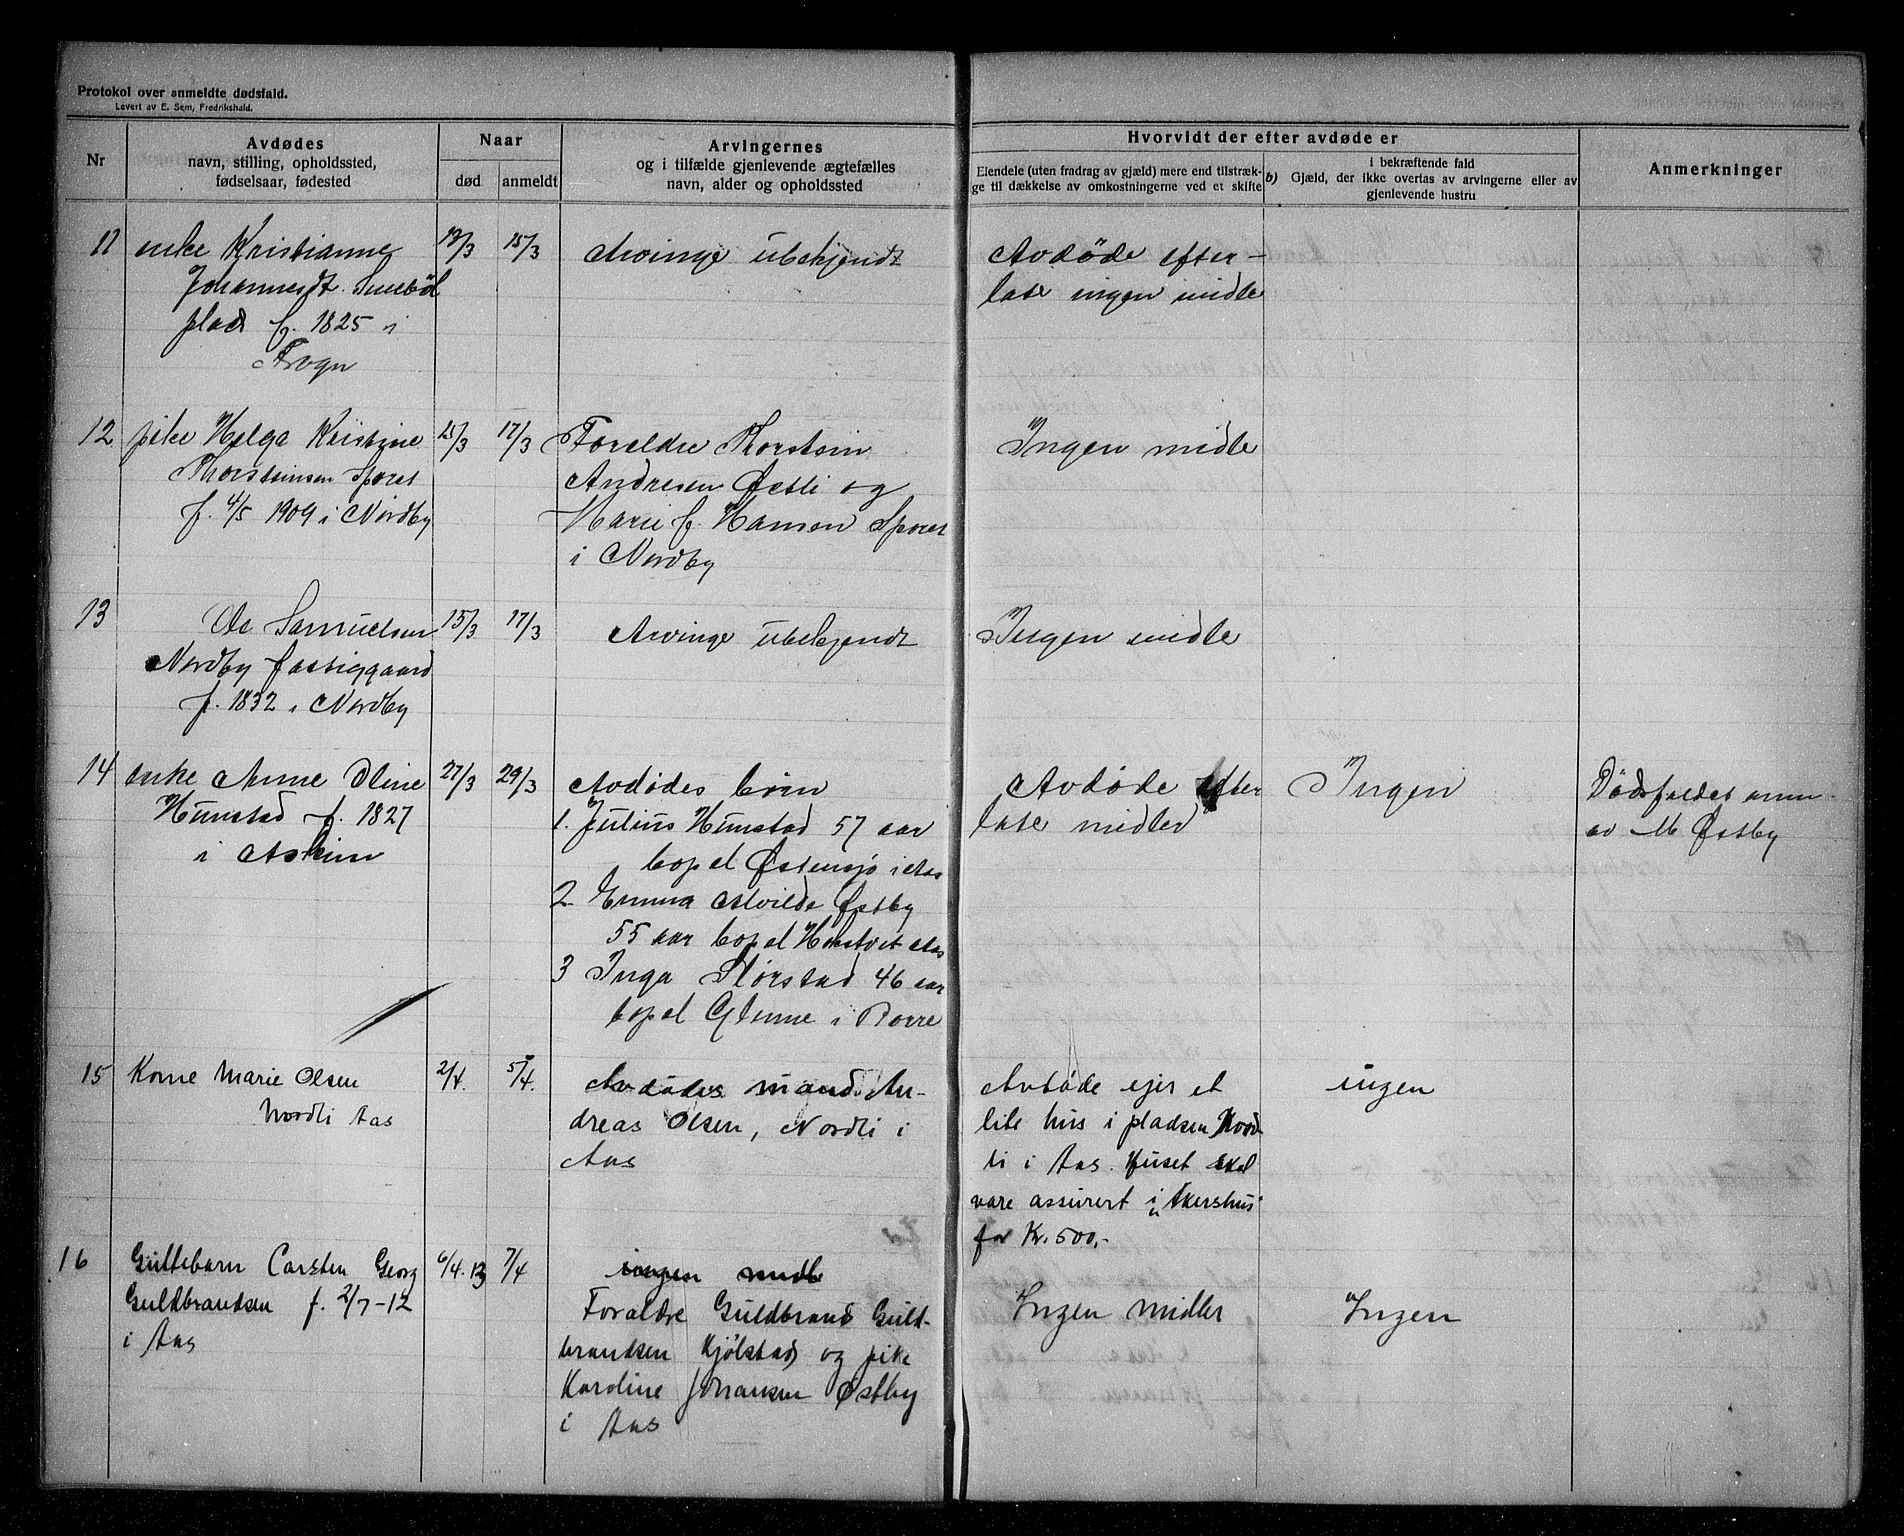 Protokol over anmeldte dødsfald.
Levert av E. Sem, Fredrikshald.
Nr
Avdødes
navn, stilling, opholdssted,
fødselsaar, fødested
Naar
død
anmeldt
Arvingernes
og i tilfælde gjenlevende ægtefælles
navn, alder og opholdssted
Hvorvidt der efter avdøde er
Eiendele (uten fradrag av gjæld) mere end tilstræk-
ge til dækkelse av omkostningerne ved et skifte
b)
i bekræftende fald
Gjæld, der ikke overtas av arvingerne eller av
gjenlevende hustru
Anmerkninger
11 enke Kristianne 12/3 15/3 Arvinge ubekjendt Avdøde efter-
Johannesdt. Smebøl late ingen midle
plads f. 1825 i
Frogn
12 pike Helga Kristine 15/3 17/3 Foreldre Thorstein Ingen midle
Thorsteinsen Sporet Andresen Østli og
f. 4/5 1909 i Nordby Marie f. Hansen Sporet
i Nordby
13 Ole Samuelsen 15/3 17/3 Arvinge ubekjendt Ingen midle
Nordby fattiggaard
f. 1832 i Nordby
14 enke Anne Oline 27/3 29/3 Avdødes børn Avdøde efter Ingen Dødsfaldet anm
Hunstad f. 1827 1. Julius Hunstad 57 aar late midler av M Østby
i Askim bopel Østensjø i Aas
2 Emma Alvilde Østby
55 aar bopel Hogstvet Aas
3 Inga Størstad 46 aar
bopel Glenne i Borre
15 Korne Marie Olsen 2/4. 5/4. Avdødes mand An- Avdøde ejer et ingen
Nordli Aas dreas Olsen, Nordli i lite hus i pladsen Nord-
Aas li i Aas. Huset skal
være assurert i Akershus
for Kr. 500,-
16 Guttebarn Carsten Georg 6/4.13 7/4 ingen midle
Guldbrandsen f. 2/7-12 Forældre Guldbrand Guld- Ingen midler Ingen
i Aas brandsen Kjølstad og pike
Karoline Johansen Østby
i Aas